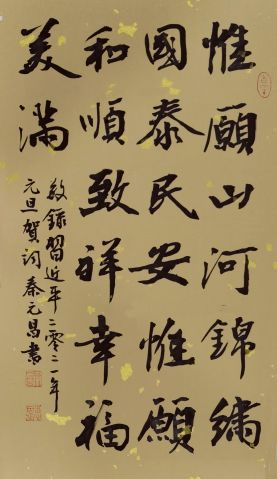 惟願山河錦繡
國泰民安惟願
和順致祥幸福
美滿
敬錄習近平二零二一年
元旦賀詞秦元昌書